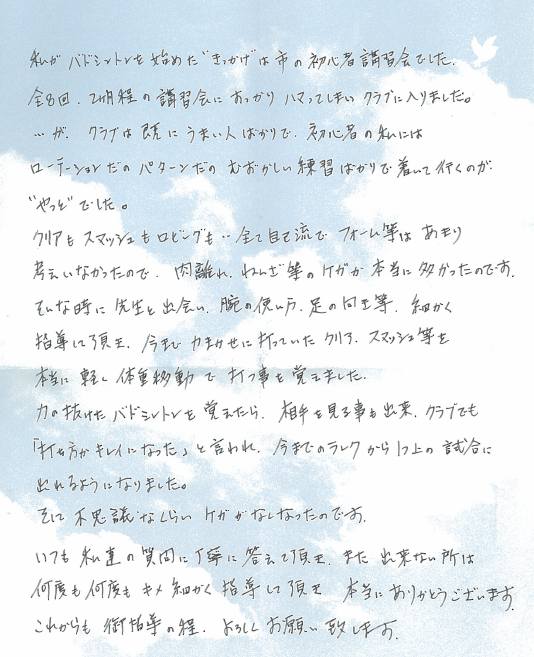 私が バドミントンを 始めた"きっかけ"は 市の 初心者 講習会でした.
全8回. 2カ月程の 講習会に すっかり ハマってしまい クラブに入りました。
…が. クラブは 既に うまい人ばかりで. 初心者の 私には
ローテーションだの パターンだの むずかしい 練習 ばかりで 着いて 行くのが.
"やっと"でした。
クリアも スマッシュも ロビングも‥全て 自己流で フォーム等は あまり
考えいなかったので. 肉離れ. ねんざ等の ケガが 本当に 多かったのです.
そんな時に 先生と 出会い. 腕の使い方. 足の向き等. 細かく
指導して頂き. 今まで 力まかせに 打っていた クリア. スマッシュ等を
本当に 軽く 体重移動 で 打つ事を 覚えました.
力の抜けた バドミントンを 覚えたら. 相手を 見る事も 出来. クラブでも
「打ち方が キレイになった」と 言われ. 今までのランク から 1つ上の 試合に
出れるようになりました。
そして 不思議なくらい ケガが なくなったのです.
いつも 私達の 質問に 丁寧に 答えて頂き. また 出来ない所は
何度も 何度も キメ 細かく 指導して 頂き 本当に ありがとうございます.
これからも 御指導の程. よろしく お願い 致します.